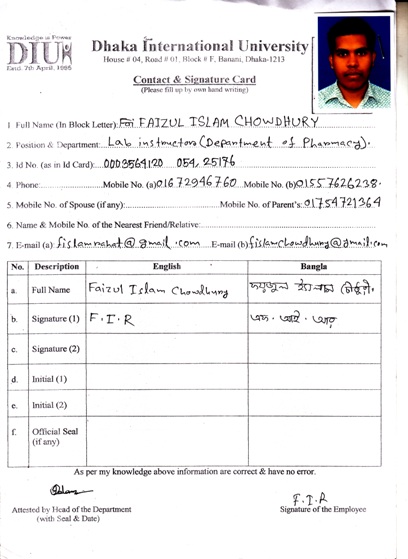 Knowledge is Power
DIU
Estd. 7th April, 1995
Dhaka International University
House # 04, Road # 01, Block # F, Banani, Dhaka-1213
Contact & Signature Card
(Please fill up by own hand writing)
1. Full Name (In Block Letter): FAIZUL ISLAM CHOWDHURY
2. Position & Department: Lab instructors (Department of Pharmacy).
3. Id No. (as in Id Card): 0003564120 054, 25176
4. Phone: Mobile No. (a) 01672946760 Mobile No. (b) 01557626238.
5. Mobile No. of Spouse (if any): Mobile No. of Parent's: 01754721364
6. Name & Mobile No. of the Nearest Friend/Relative:
7. E-mail (a): fislamrahat@gmail.com E-mail (b): fislamchowdhury@gmail.com
No. Description English Bangla
a. Full Name Faizul Islam Chowdhury ফয়জুল ইসলাম চৌধুরী.
b. Signature (1) F. I. R এফ. আই. আর
c. Signature (2)
d. Initial (1)
e. Initial (2)
f. Official Seal
(if any)
As per my knowledge above information are correct & have no error.
F. I. R
Attested by Head of the Department Signature of the Employee
(with Seal & Date)